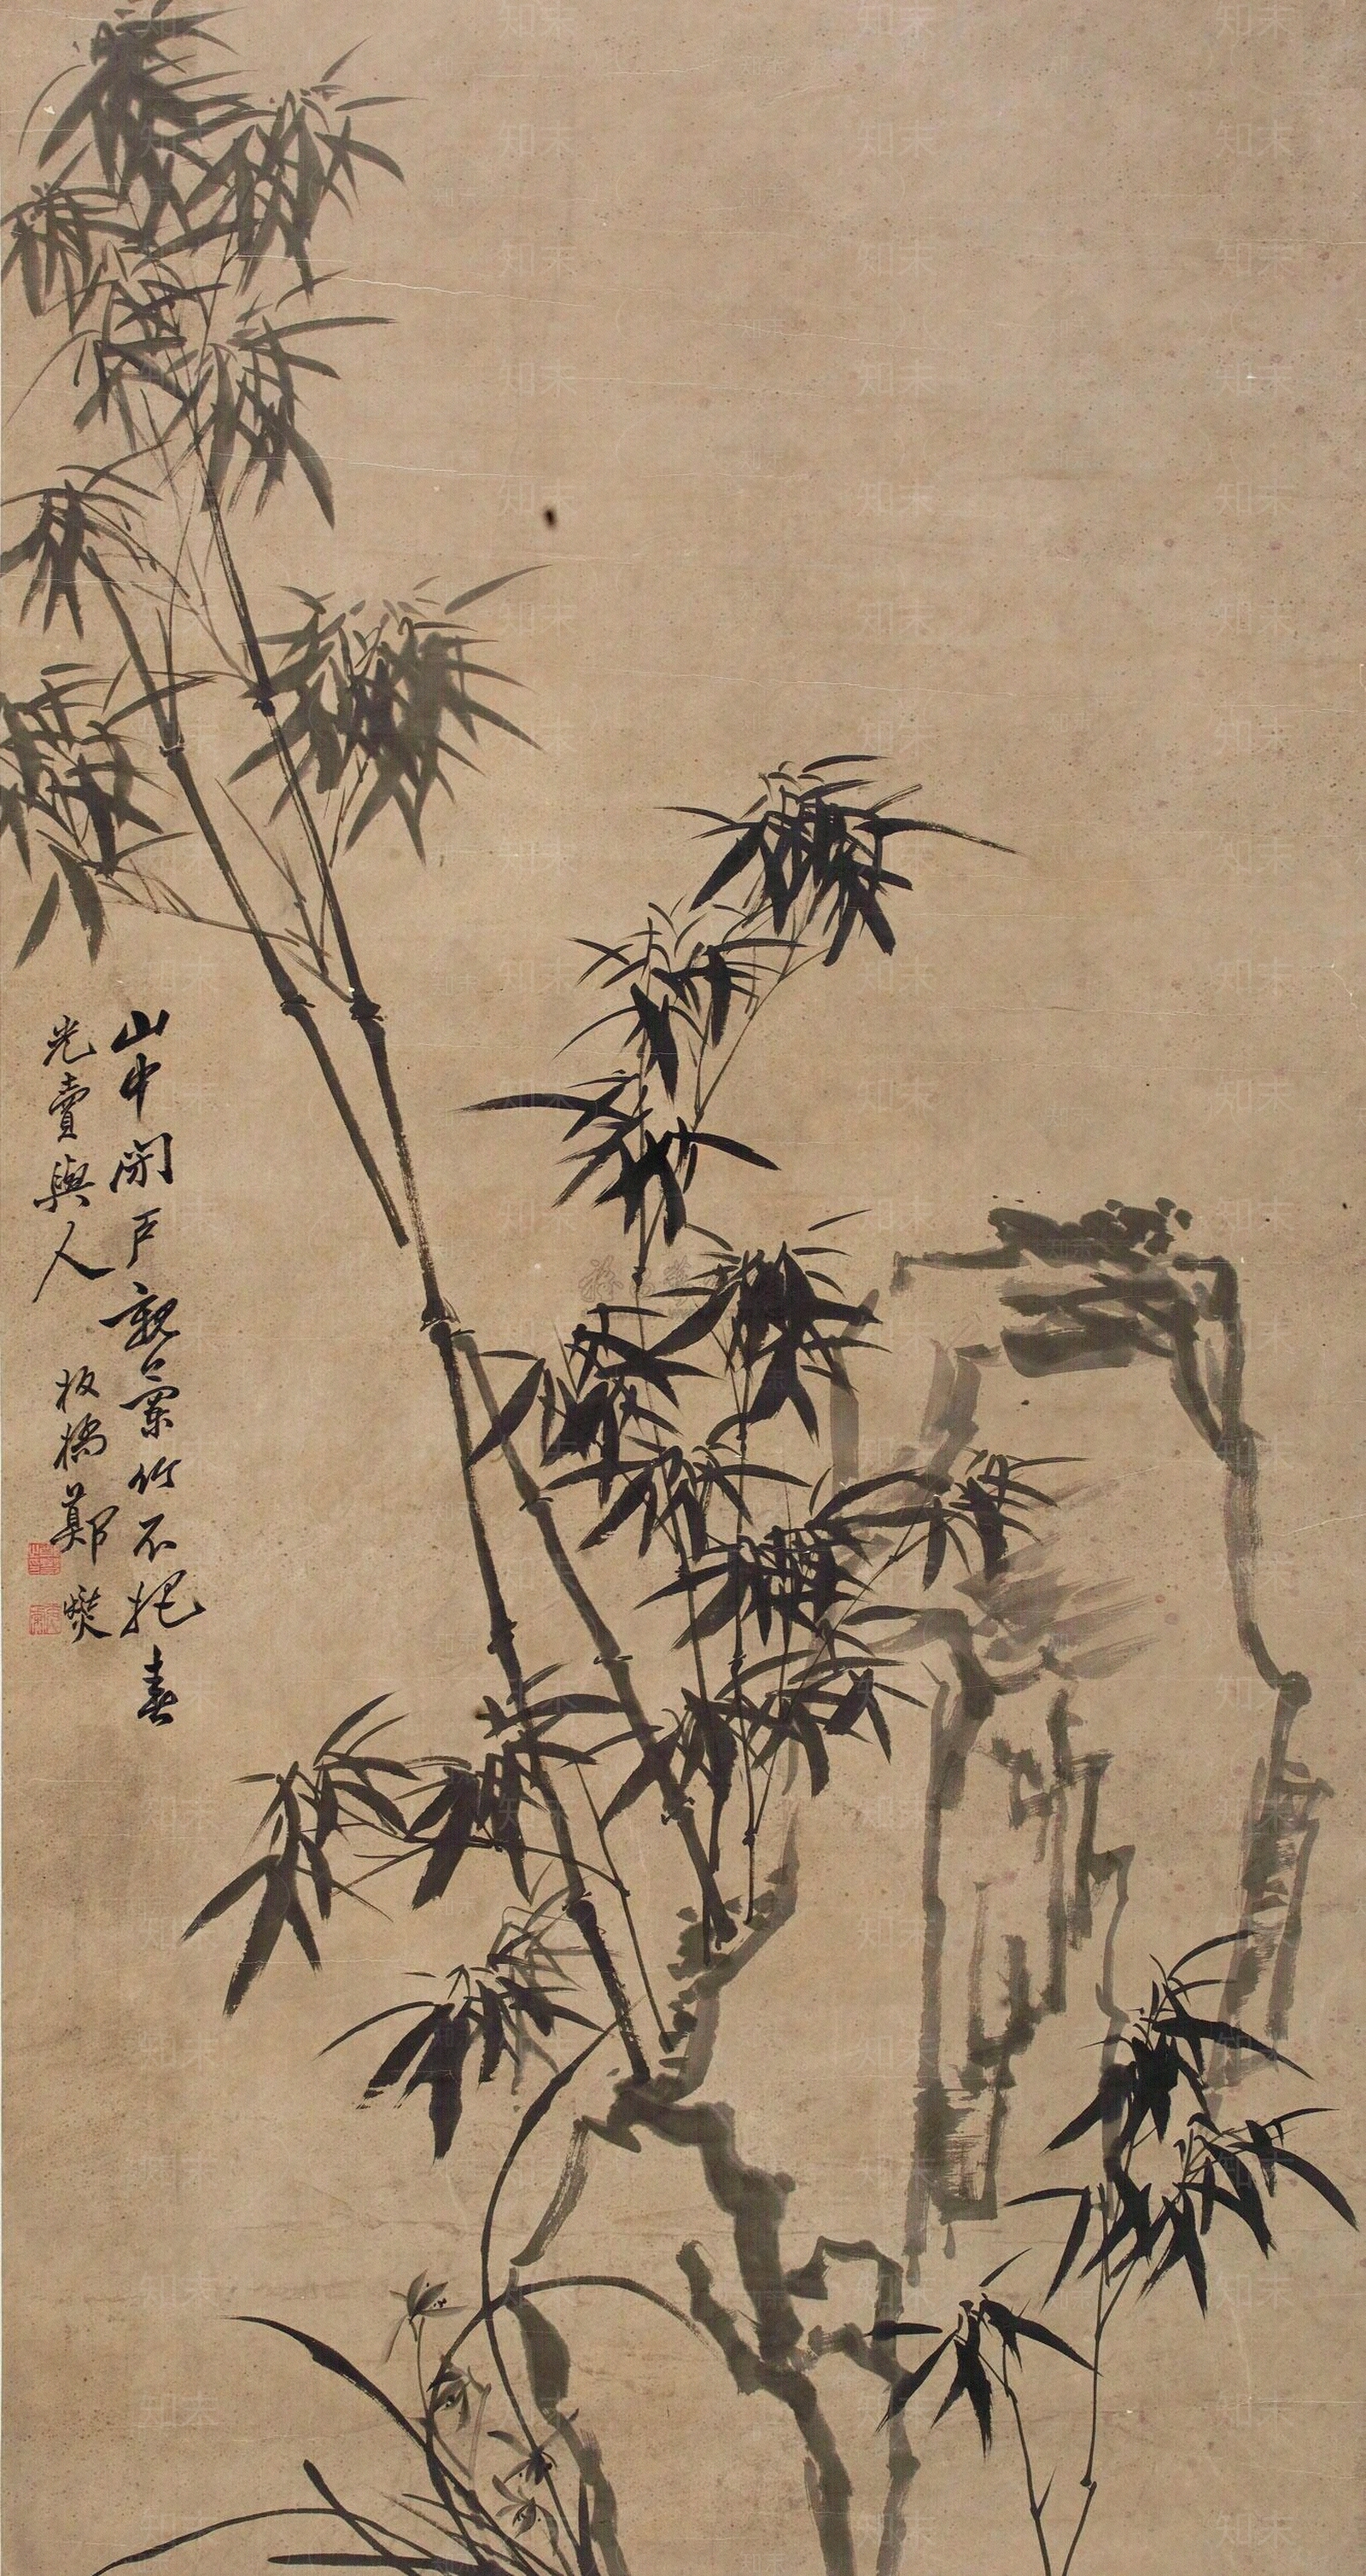 山中閉戶親蘭竹不把春
光賣與人
板橋鄭燮
知末